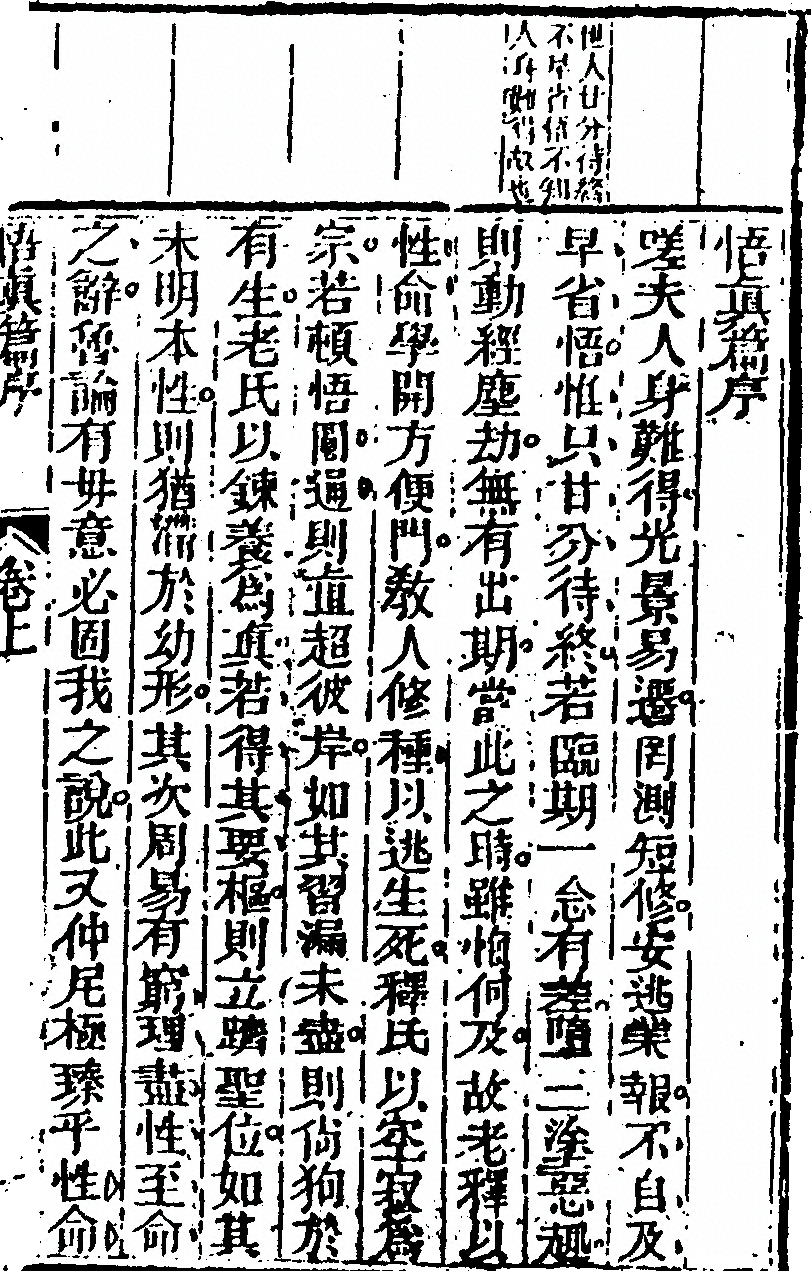 世人甘分待終
不早省悟不知
人身難得故也
悟真篇序
嗟夫人身難得。光景易遷。罔測短修。安逃業報。不自及
早省悟。惟只甘分待終。若臨期一念有差。墮三塗惡趣。
則動經塵劫。無有出期。當此之時。雖悔何及。故老釋以
性命學。開方便門。教人修種。以逃生死。釋氏以空寂爲
宗。若頓悟圓通。則直超彼岸。如其習漏未盡。則尙狥於
有生。老氏以鍊養爲眞。若得其要樞。則立躋聖位。如其
未明本性。則猶滯於幼形。其次周易有窮理盡性至命
之辭。魯論有毋意必固我之說。此又仲尼極臻乎性命
悟眞篇序 卷上